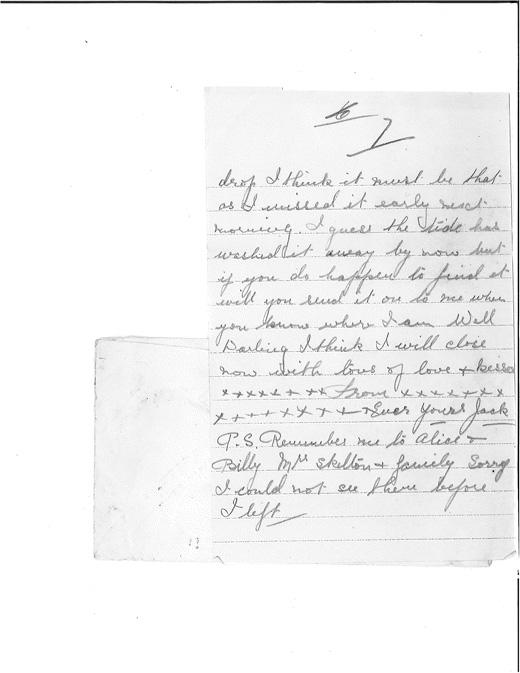 7
drop I think it must be that
as I missed it early next
morning. I guess the tide has
washed it away by now but
if you do happen to find it
will you send it on to me when
you know where I am Well
Darling I think I will close
now with tons of love + kisses
x x x x x x x x From x x x x x x x
x x x x x x x x Ever Yours Jack
P.S. Remember me to Alice +
Billy Mrs Skelton + family Sorry
I could not see them before
I left